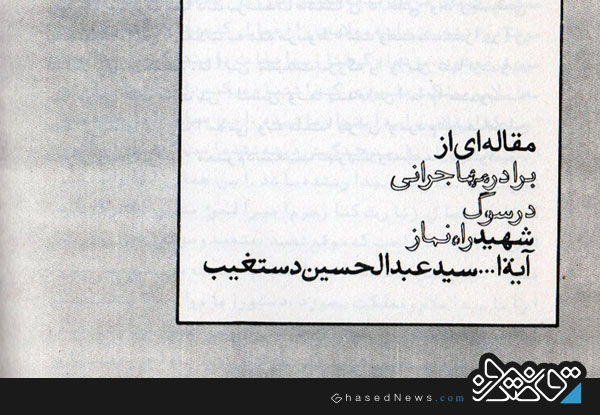 مقاله‌ای از
برادر مهاجرانی
در سوگ
شهید راه نماز
آیة ا... سید عبدالحسین دستغیب
GhasedNews.com